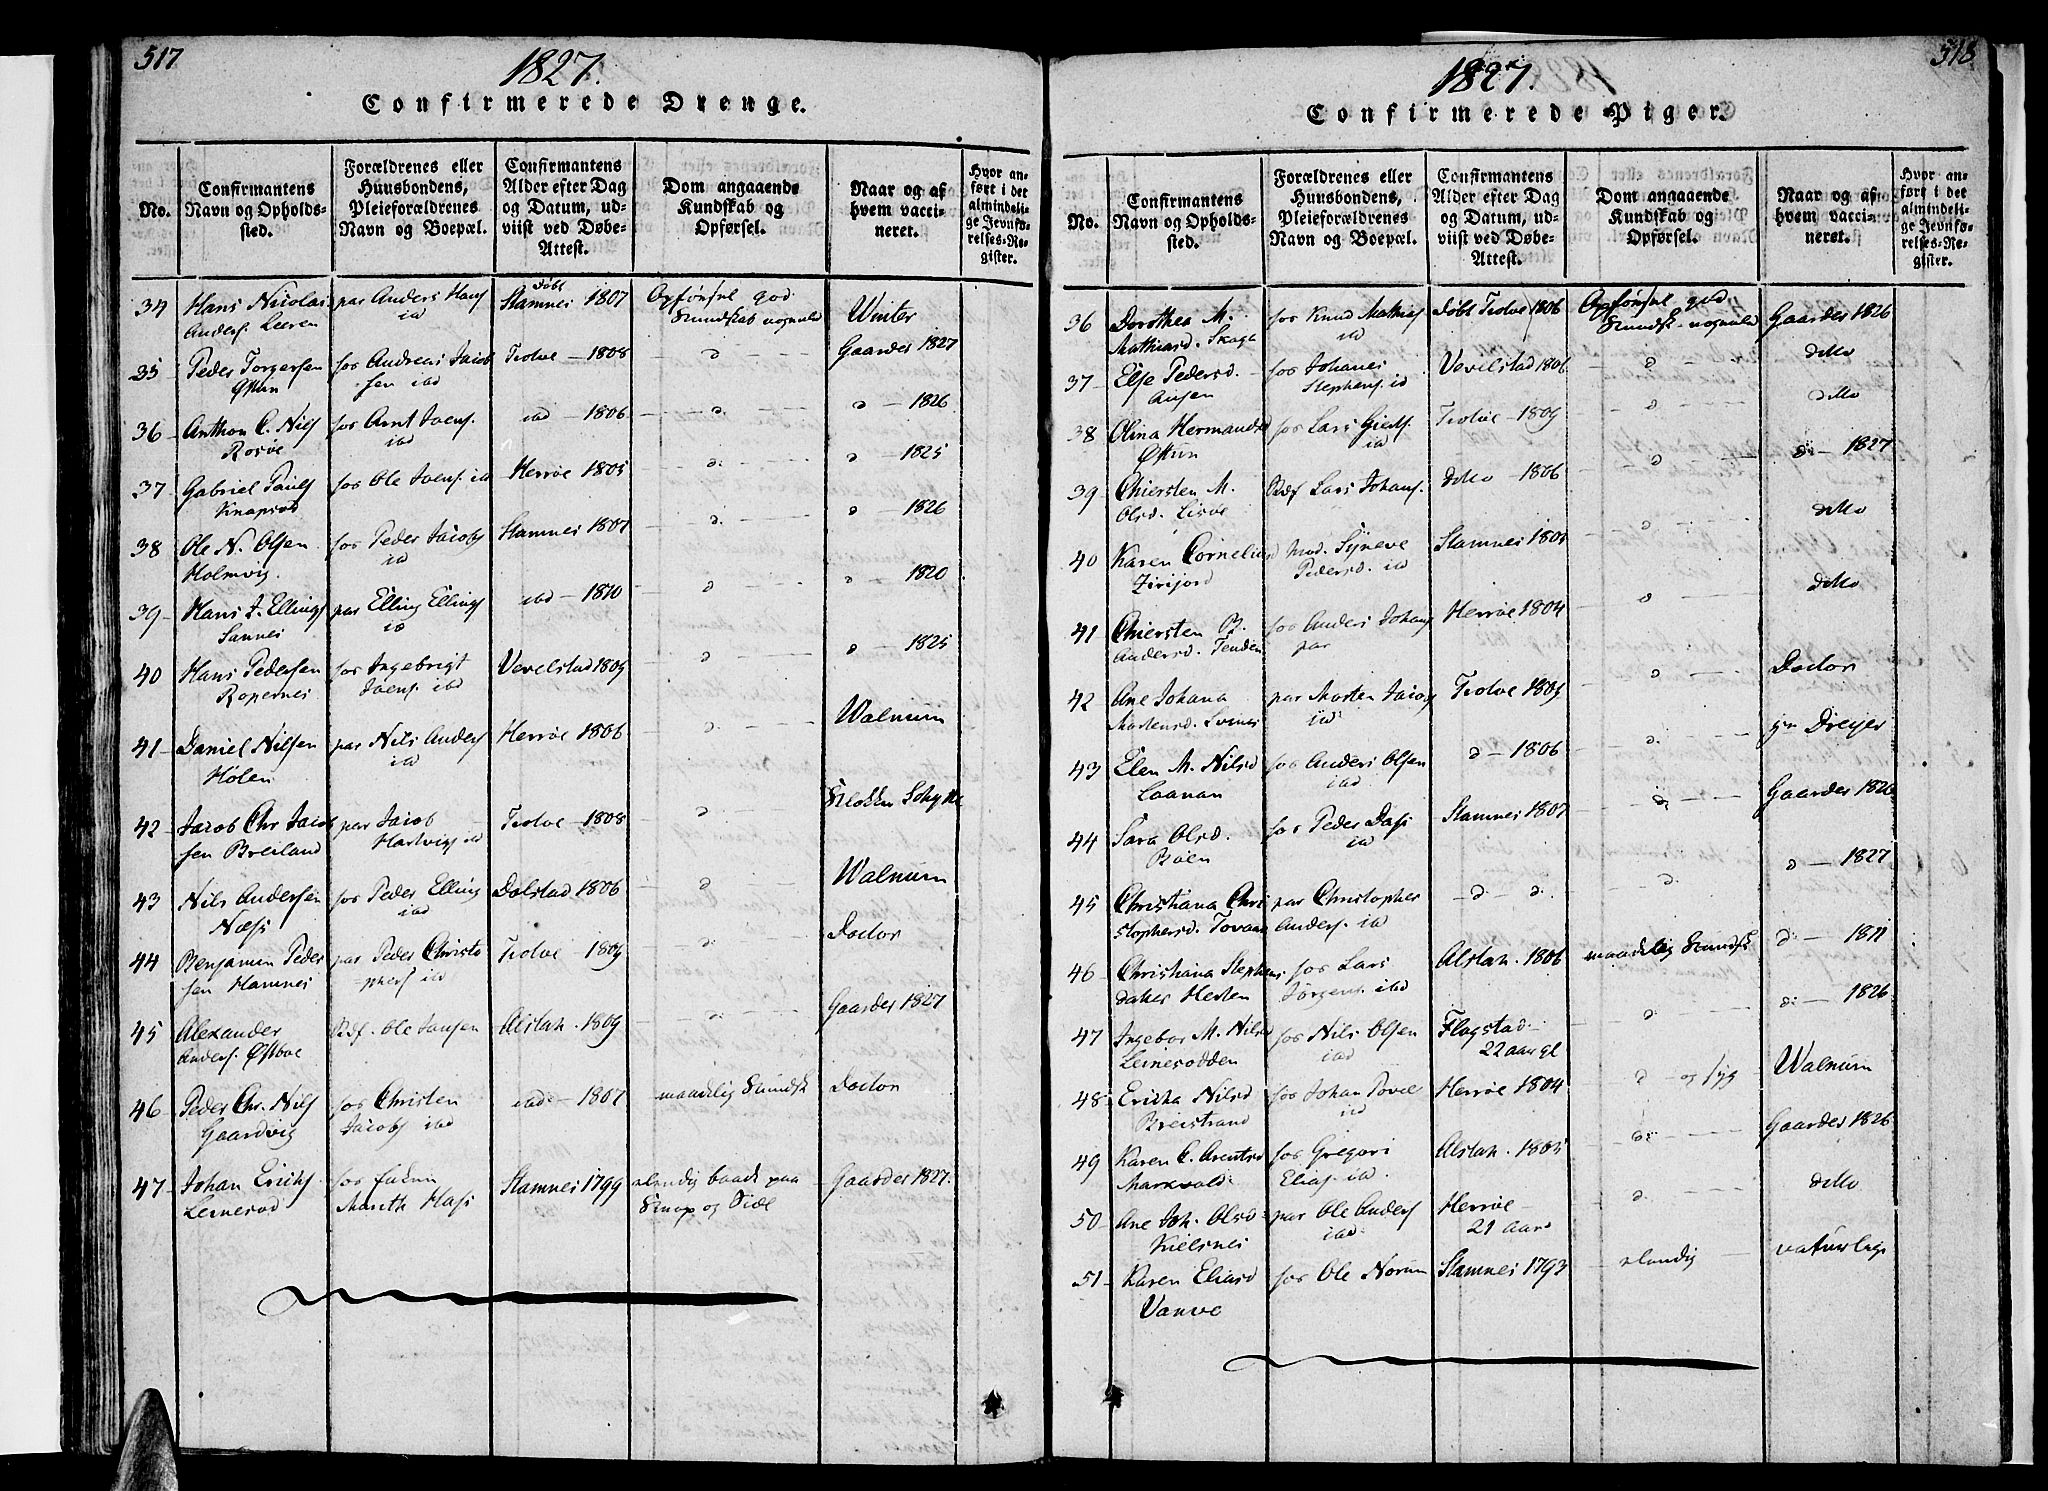 517
1827.
Confirmerede Drenge.
No.
Confirmantens Navn og Opholdssted.
Forældrenes eller Huusbondens, Pleieforældrenes Navn og Boepæl.
Confirmantens Alder efter Dag og Datum, udviist ved Døbe-Attest.
Dom angaaende Kundskab og Opførsel.
Naar og af hvem vaccineret.
Hvor anført i det almindelige Jevnførelses-Register.
34 Hans Nicolai Anders. Leeren par Anders Hans. ibd døbt Stamnes 1807 Opførsel god Kundskab nogenl Winter
35 Peder Torgersen for Andreas Jacobsen ibd Tiolve 1808 d Gaarder 1827
36 Anthon C. Nils Rosøe for Arnt Joens. ibd ibd 1806 d d 1826
37 Gabriel Pauls for Ole Joens. ibd Herrøe 1805 d d 1825
38 Ole N. Olsen Holmvig. for Peder Jacobs ibd Stamnes 1807 d d 1826
39 Hans J. Ellings Sannes par Elling Ellings ibd 1810 d d 1820
40 Hans Pedersen for Ingebrigt Joens. ibd Vevelstad 1809 d d 1825
41 Daniel Nilsen Hølen par Nils Anders ibd Herrøe 1806 d Walnum
42 Jacob Chr Jacobsen Breiland par Jacob Hartvigs ibd Tiolve 1808 d Klokker
43 Nils Andersen Næss for Peder Elling ibd Dolstad 1806 d Walnum
44 Benjamin Pedersen Hamnes par Peder Christophers ibd Tiolve 1809 d Doctor
45 Alexander Anders. Østboe Ole Jansen Alstah. 1809 d Gaarder 1827
46 Peder Chr. Nils Gaardvig for Christen Jacobs ibd ibd 1807 maadelig Kundsk Doctor
47 Johan Erichs. for Stamnes 1799 elendig baade paa Krop og Siæl Gaarder 1827.
518
1827.
Confirmerede Piger.
No.
Confirmantens Navn og Opholdssted.
Forældrenes eller Huusbondens, Pleieforældrenes Navn og Boepæl.
Confirmantens Alder efter Dag og Datum, udviist ved Døbe-Attest.
Dom angaaende Kundskab og Opførsel.
Naar og af hvem vaccineret.
Hvor anført i det almindelige Jevnførelses-Register.
36 Dorothea M. Mathiasd. Skaga for Knud Mathis ibd døbt Tiolve 1806 Opførsel god Kundsk. nogenld Gaarder 1826
37 Else Pedersd. for Johanes Stephens. ibd Vevelstad 1806 d ditto
38 Olina Hermandsd for Lars ibd Tiolve 1809 d ditto
39 Chiersten M. Olsd. Lars Johans. ditto 1806 d d 1827
40 Karen Corneliusd Mod. Syneve Pedersd. ibd Stamnes d ditto
41 Chiersten B. Andersd. for Anders Johans Herrøe 1804 d ditto
42 Ane Johana Mortensd. Svines par Morten Jacobs ibd Tiolve 1809 d Doctor
43 Elen M. Nilsd for Anders Olsen ibd d 1806 d Dreyer
44 Sara Olsd. for Peder Dass ibd Stamnes 1807 d Gaarder 1826
45 Christiana Christophersd. par Christopher Anders. ibd d d d d 1827
46 Christiana Stephensdater Hesten for Lars Jørgens. ibd Alstah. 1806 maadelig Kundsk d 1811
47 Ingebor M. Nilsd Leinesodden for Nils Olsen ibd Flagstad 22 aar gl d d 1826
48 Ericha Nilsd Breistrand for Johan Povel ibd Herrøe 1804 d og Walnum
49 Karen C. Arentsd for Gregori Elias. ibd Alstah. 1805 d Gaarder 1826
50 Ane Joh. Olsd Kielsnes par Ole Anders ibd Herrøe 21 aar d ditto
51 Karen Eliasd for Ole Norum Stamnes 1793 elendig naturlige